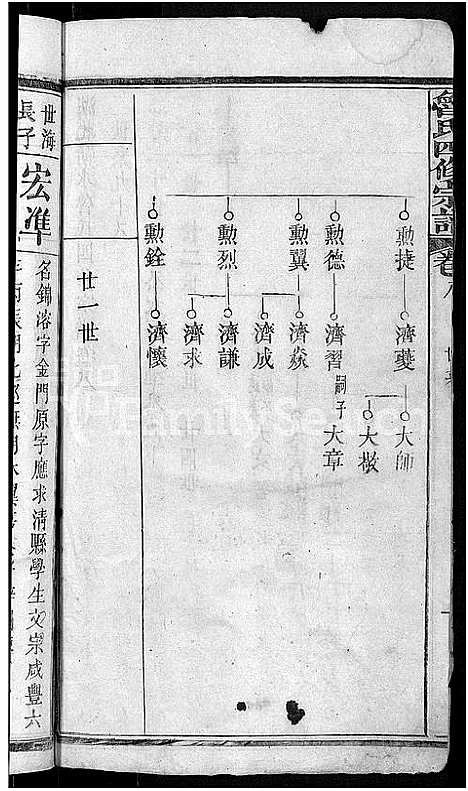 曾氏四修宗譜
勲捷
濟夔
大師
大橃
勲德
濟習
嗣子
大章
勲翼
濟焱
濟成
勲烈
濟謙
濟求
勲銓
濟懷
廿一世
世海
長子
宏準
名錦溶字金門原字應求清縣學生文宗咸豐六